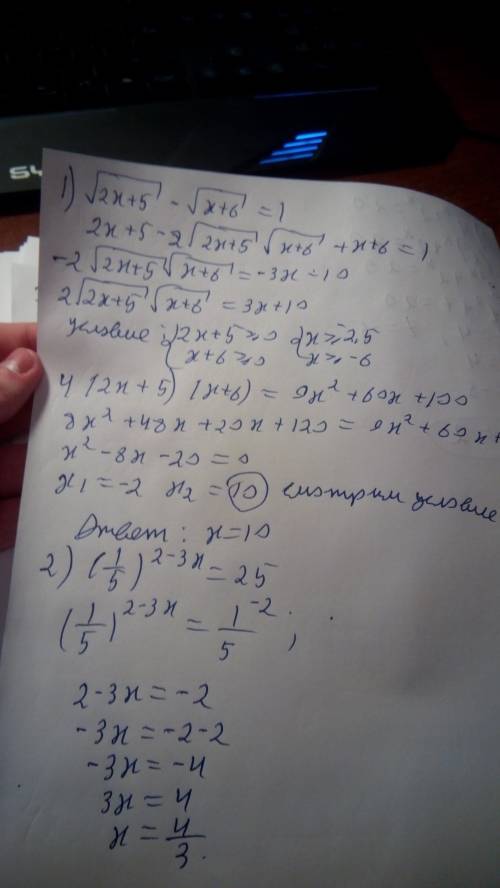 1) √(2x+5) - √(x+6) = 1
2x+5 - 2√(2x+5) √(x+6) + x+6 = 1
-2√(2x+5) √(x+6) = -3x - 10
2√(2x+5) √(x+6) = 3x+10
условие: { 2x+5 ≥ 0 { x ≥ -2,5
x+6 ≥ 0 x ≥ -6
4 (2x+5) (x+6) = 9x² + 60x + 100
8x² + 48x + 20x + 120 = 9x² + 60x +
x² - 8x - 20 = 0
x₁ = -2 x₂ = 10 смотрим условие
Ответ: x = 10
2) (1/5)^(2-3x) = 25
(1/5)^(2-3x) = 1/5^(-2) ;
2-3x = -2
-3x = -2-2
-3x = -4
3x = 4
x = 4/3.